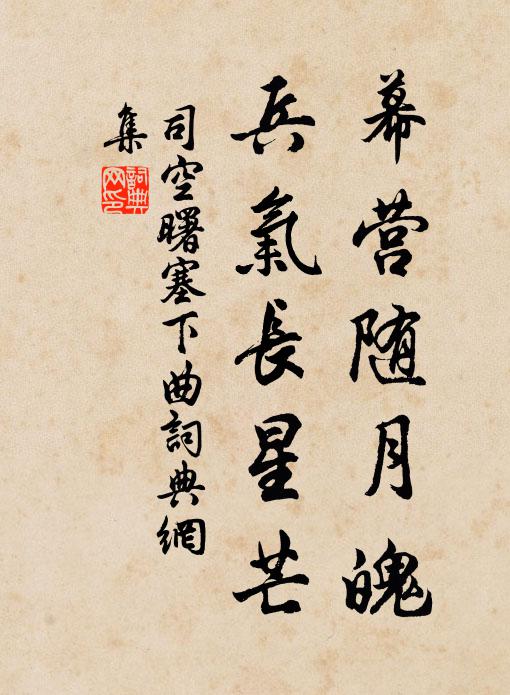 幕营随月魄
兵氣長星芒
司空曙塞下曲詞典網
集
詞典
网印